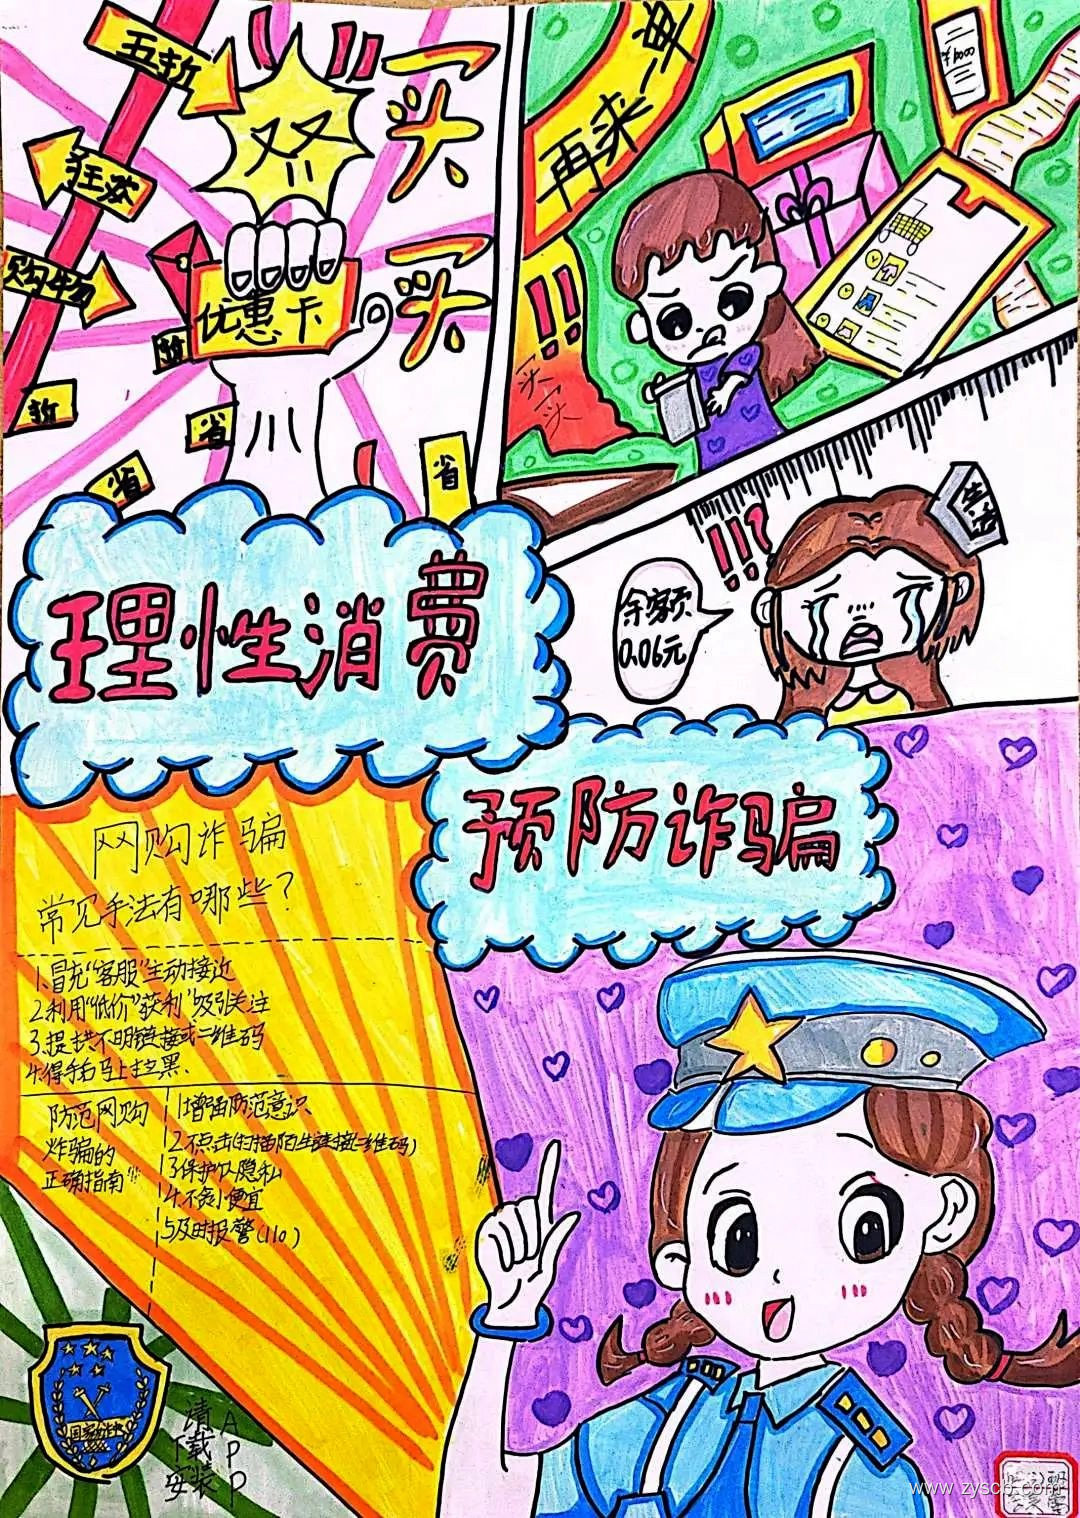 五折
买
狂欢
购物
买
优惠卡
折
省
省
省
再来一单
!!
买
买
¥1000
!!!?
余额
0.06元
理性消费
预防诈骗
网购诈骗
常见手法有哪些?
1.冒充"客服"主动接近
2.利用"低价""获利"吸引关注
3.提供不明链接或二维码
4.得手后马上拉黑.
防范网购
诈骗的
正确指南!!!
1增强防范意识
2不点击(扫描陌生链接二维码)
3保护好隐私
4.不贪小便宜
5及时报警(110)
请下载安装
APP
www.zyscb.com